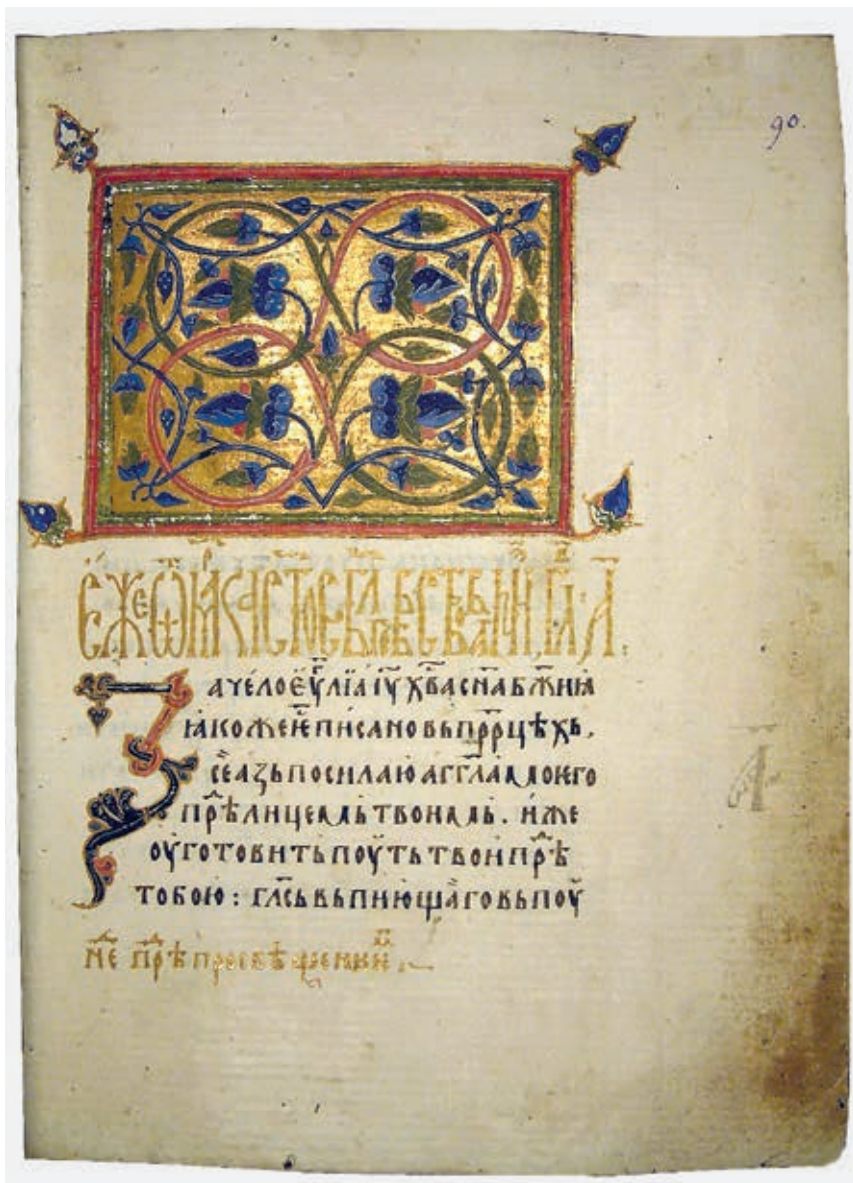 90.
Е́же ѿ Ма́рка ст҃ое еѵⷢ҇лїе
зачело еѵⷢ҇лїа і҆у҃ х҃ва с҃на б҃жїꙗ
ꙗкоже ѥ҆ⷭ҇ писано въ пррⷪ҇цѣхь.
се азь посилаю агг҃ла моѥго
прѣⷣ лицемь твоимь. иже
оуготовить поуть твои прѣⷣ
тобою : гл҃сь вьпиющаго вь поу
нⷣе прѣⷣ просвѣщенїи